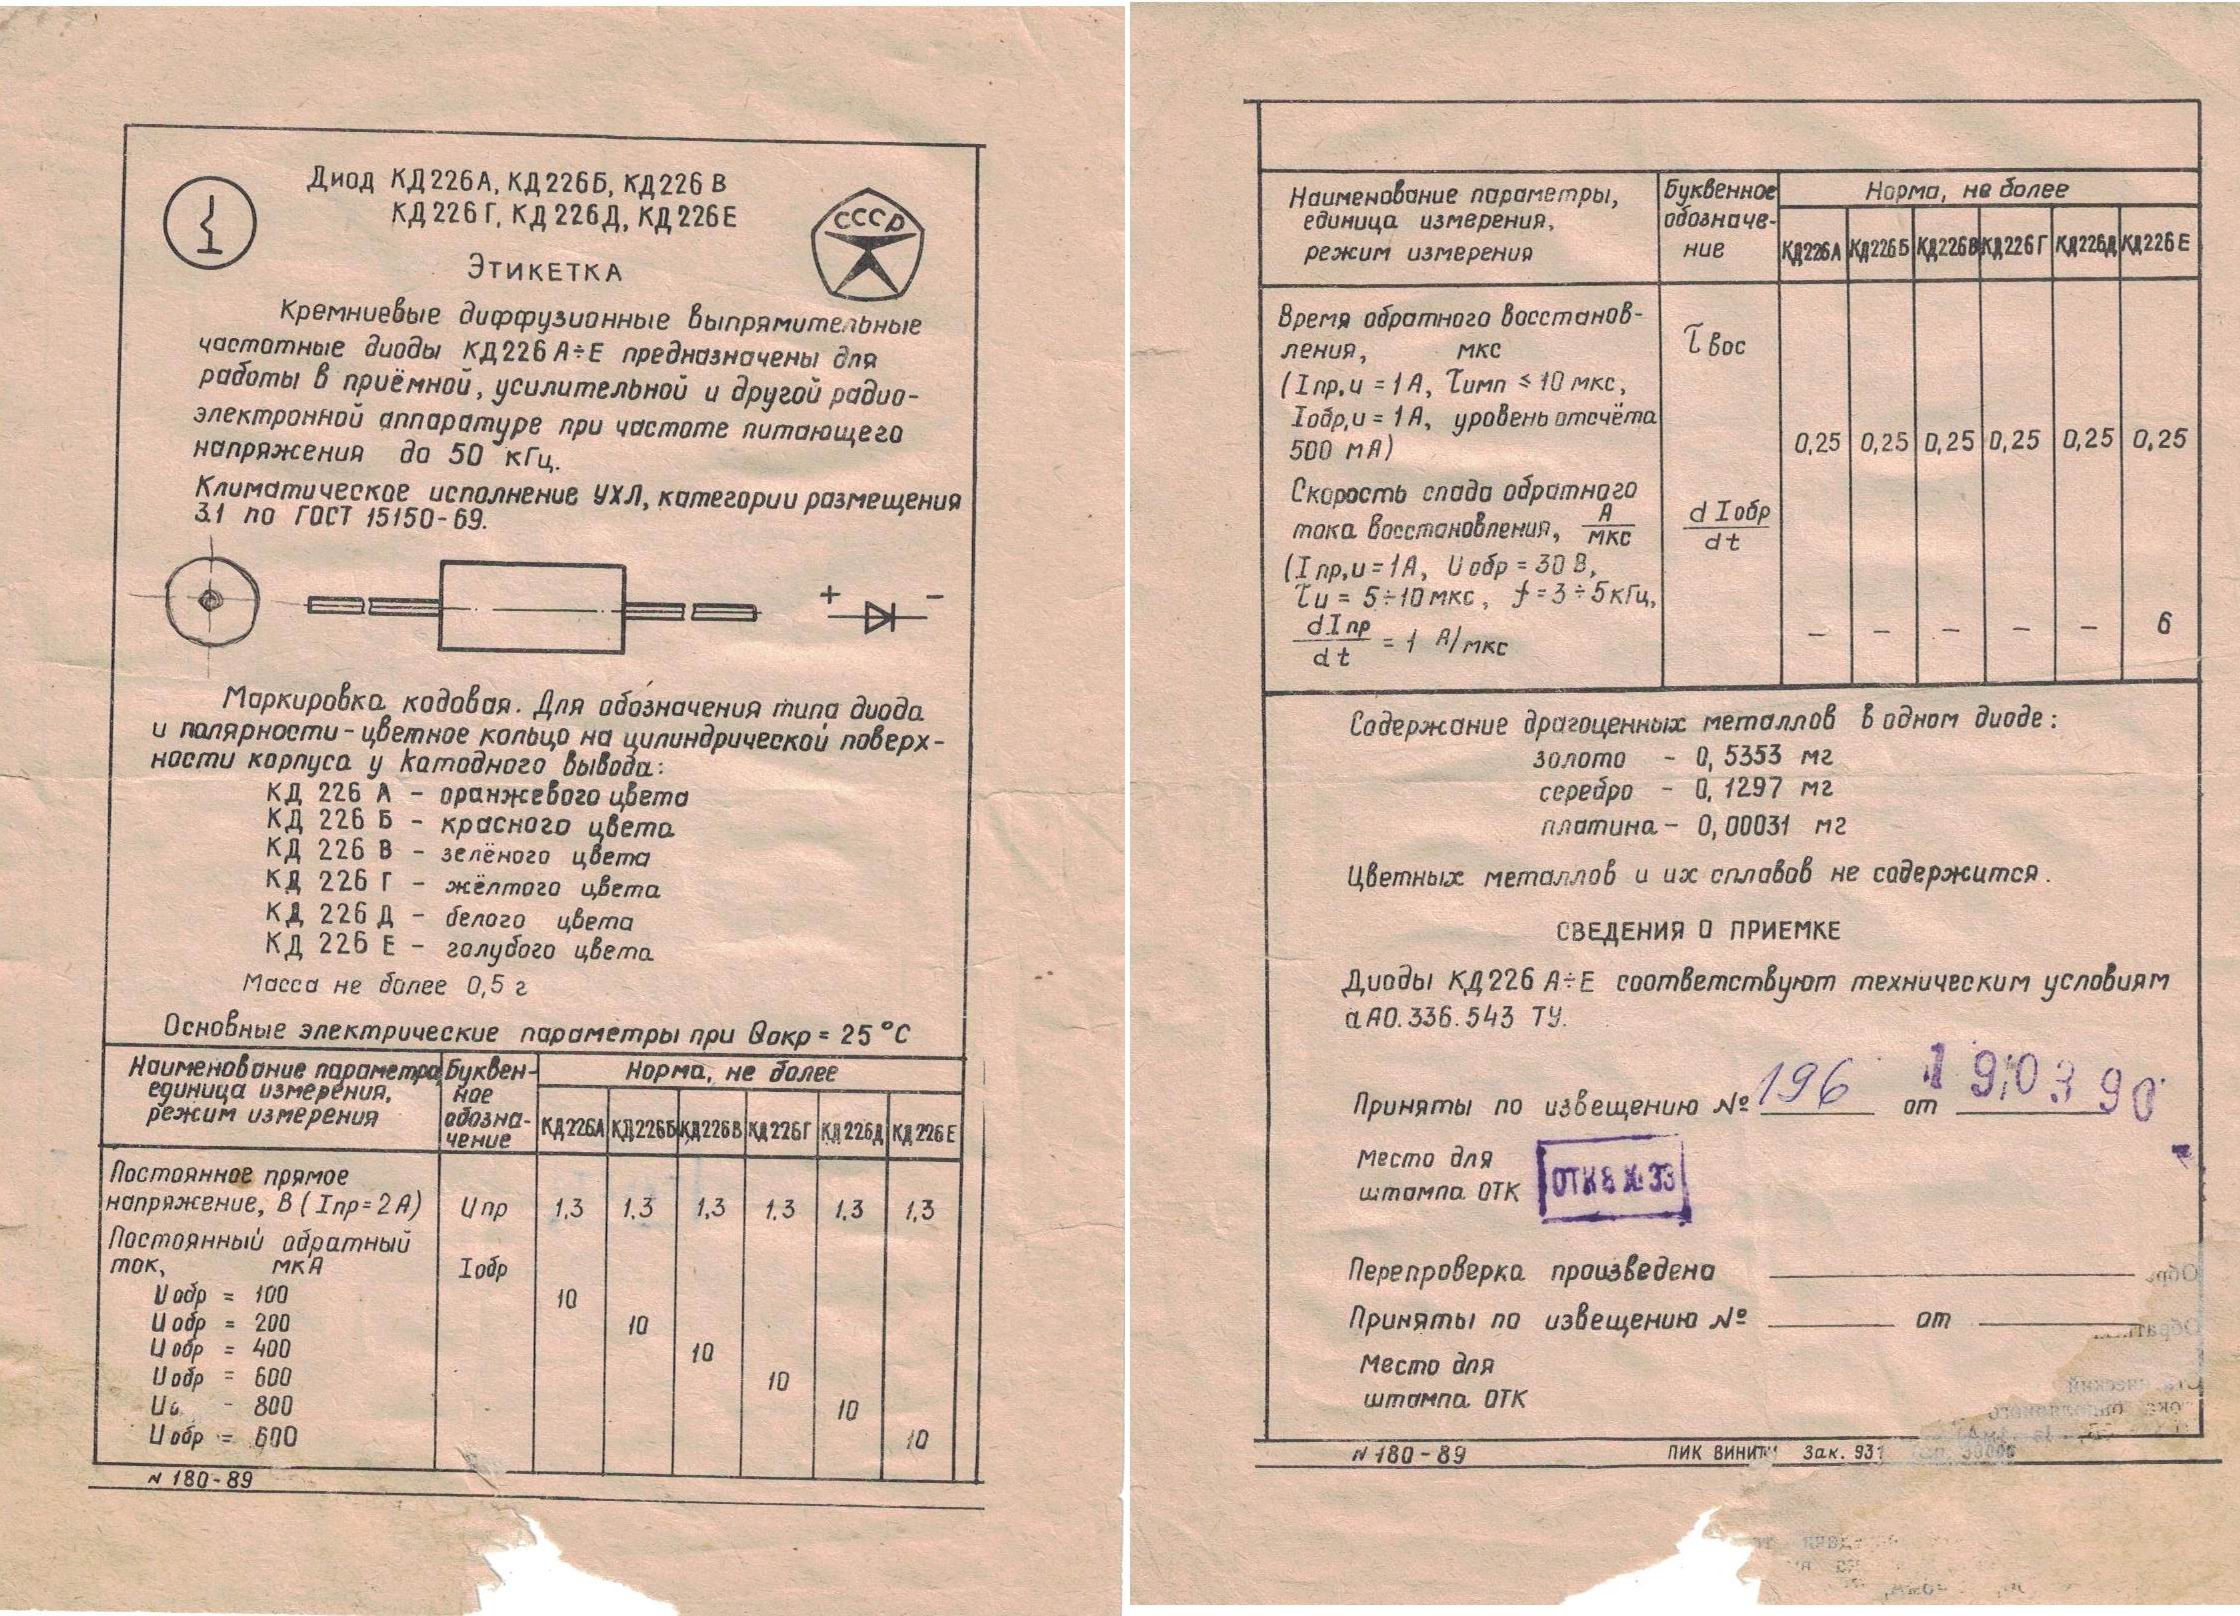 Диод КД226А, КД226Б, КД226В
КД226Г, КД226Д, КД226Е
СССР
ЭТИКЕТКА
Кремниевые диффузионные выпрямительные
частотные диоды КД226А÷Е предназначены для
работы в приёмной, усилительной и другой радио-
электронной аппаратуре при частоте питающего
напряжения до 50 кГц.
Климатическое исполнение УХЛ, категории размещения
3.1 по ГОСТ 15150-69.
+ −
Маркировка кодовая. Для обозначения типа диода
и полярности - цветное кольцо на цилиндрической поверх-
ности корпуса у катодного вывода:
КД 226 А - оранжевого цвета
КД 226 Б - красного цвета
КД 226 В - зелёного цвета
КД 226 Г - жёлтого цвета
КД 226 Д - белого цвета
КД 226 Е - голубого цвета
Масса не более 0,5 г
Основные электрические параметры при Qокр = 25 °С
Наименование параметра, единица измерения, режим измерения
Буквен-
ное
обозна-
чение
Норма, не более
КД226А КД226Б КД226В КД226Г КД226Д КД226Е
Постоянное прямое
напряжение, В (Iпр=2А) Uпр 1,3 1,3 1,3 1,3 1,3 1,3
Постоянный обратный
ток, мкА Iобр
Uобр = 100 10
Uобр = 200 10
Uобр = 400 10
Uобр = 600 10
- 800 10
Uобр = 600 10
N 180-89
Наименование параметры,
единица измерения,
режим измерения
Буквенное
обозначе-
ние
Норма, не более
КД226А КД226Б КД226В КД226Г КД226Д КД226Е
Время обратного восстанов-
ления, мкс τвос
(Iпр,и = 1А, τимп ≤ 10 мкс,
Iобр,и = 1А, уровень отсчёта
500 мА) 0,25 0,25 0,25 0,25 0,25 0,25
Скорость спада обратного
тока восстановления, А/мкс dIобр/dt
(Iпр,и=1А, Uобр = 30 В,
τи = 5÷10 мкс, f = 3÷5 кГц,
dIпр/dt = 1 А/мкс − − − − − 6
Содержание драгоценных металлов в одном диоде:
золото - 0,5353 мг
серебро - 0,1297 мг
платина - 0,00031 мг
Цветных металлов и их сплавов не содержится.
СВЕДЕНИЯ О ПРИЕМКЕ
Диоды КД226 А÷Е соответствуют техническим условиям
аАО.336.543 ТУ.
Приняты по извещению № 196 от 190390
Место для
штампа ОТК
Перепроверка произведена
Приняты по извещению № от
Место для
штампа ОТК
N 180-89 ПИК ВИНИТИ Зак. 931